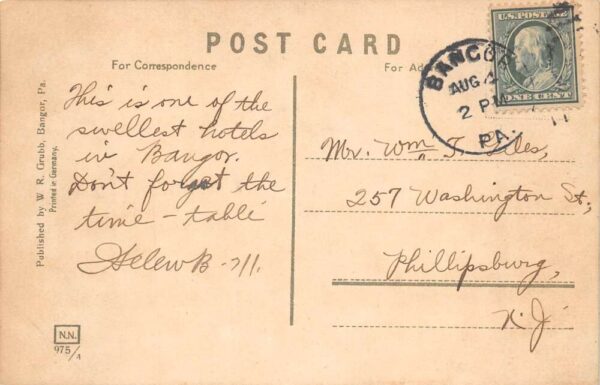 POST CARD
For Correspondence
For Ad
This is one of the
swellest hotels
in Bangor.
Don't forget the
time - table
Helen B - 711.
Published by W. R. Grubb, Bangor, Pa.
Printed in Germany.
N.N.
975/A
U.S. POSTAGE
ONE CENT
BANGOR
AUG 4
2 PM
PA.
Mr. Wm T. Iles,
257 Washington St.,
Phillipsburg,
N. J.